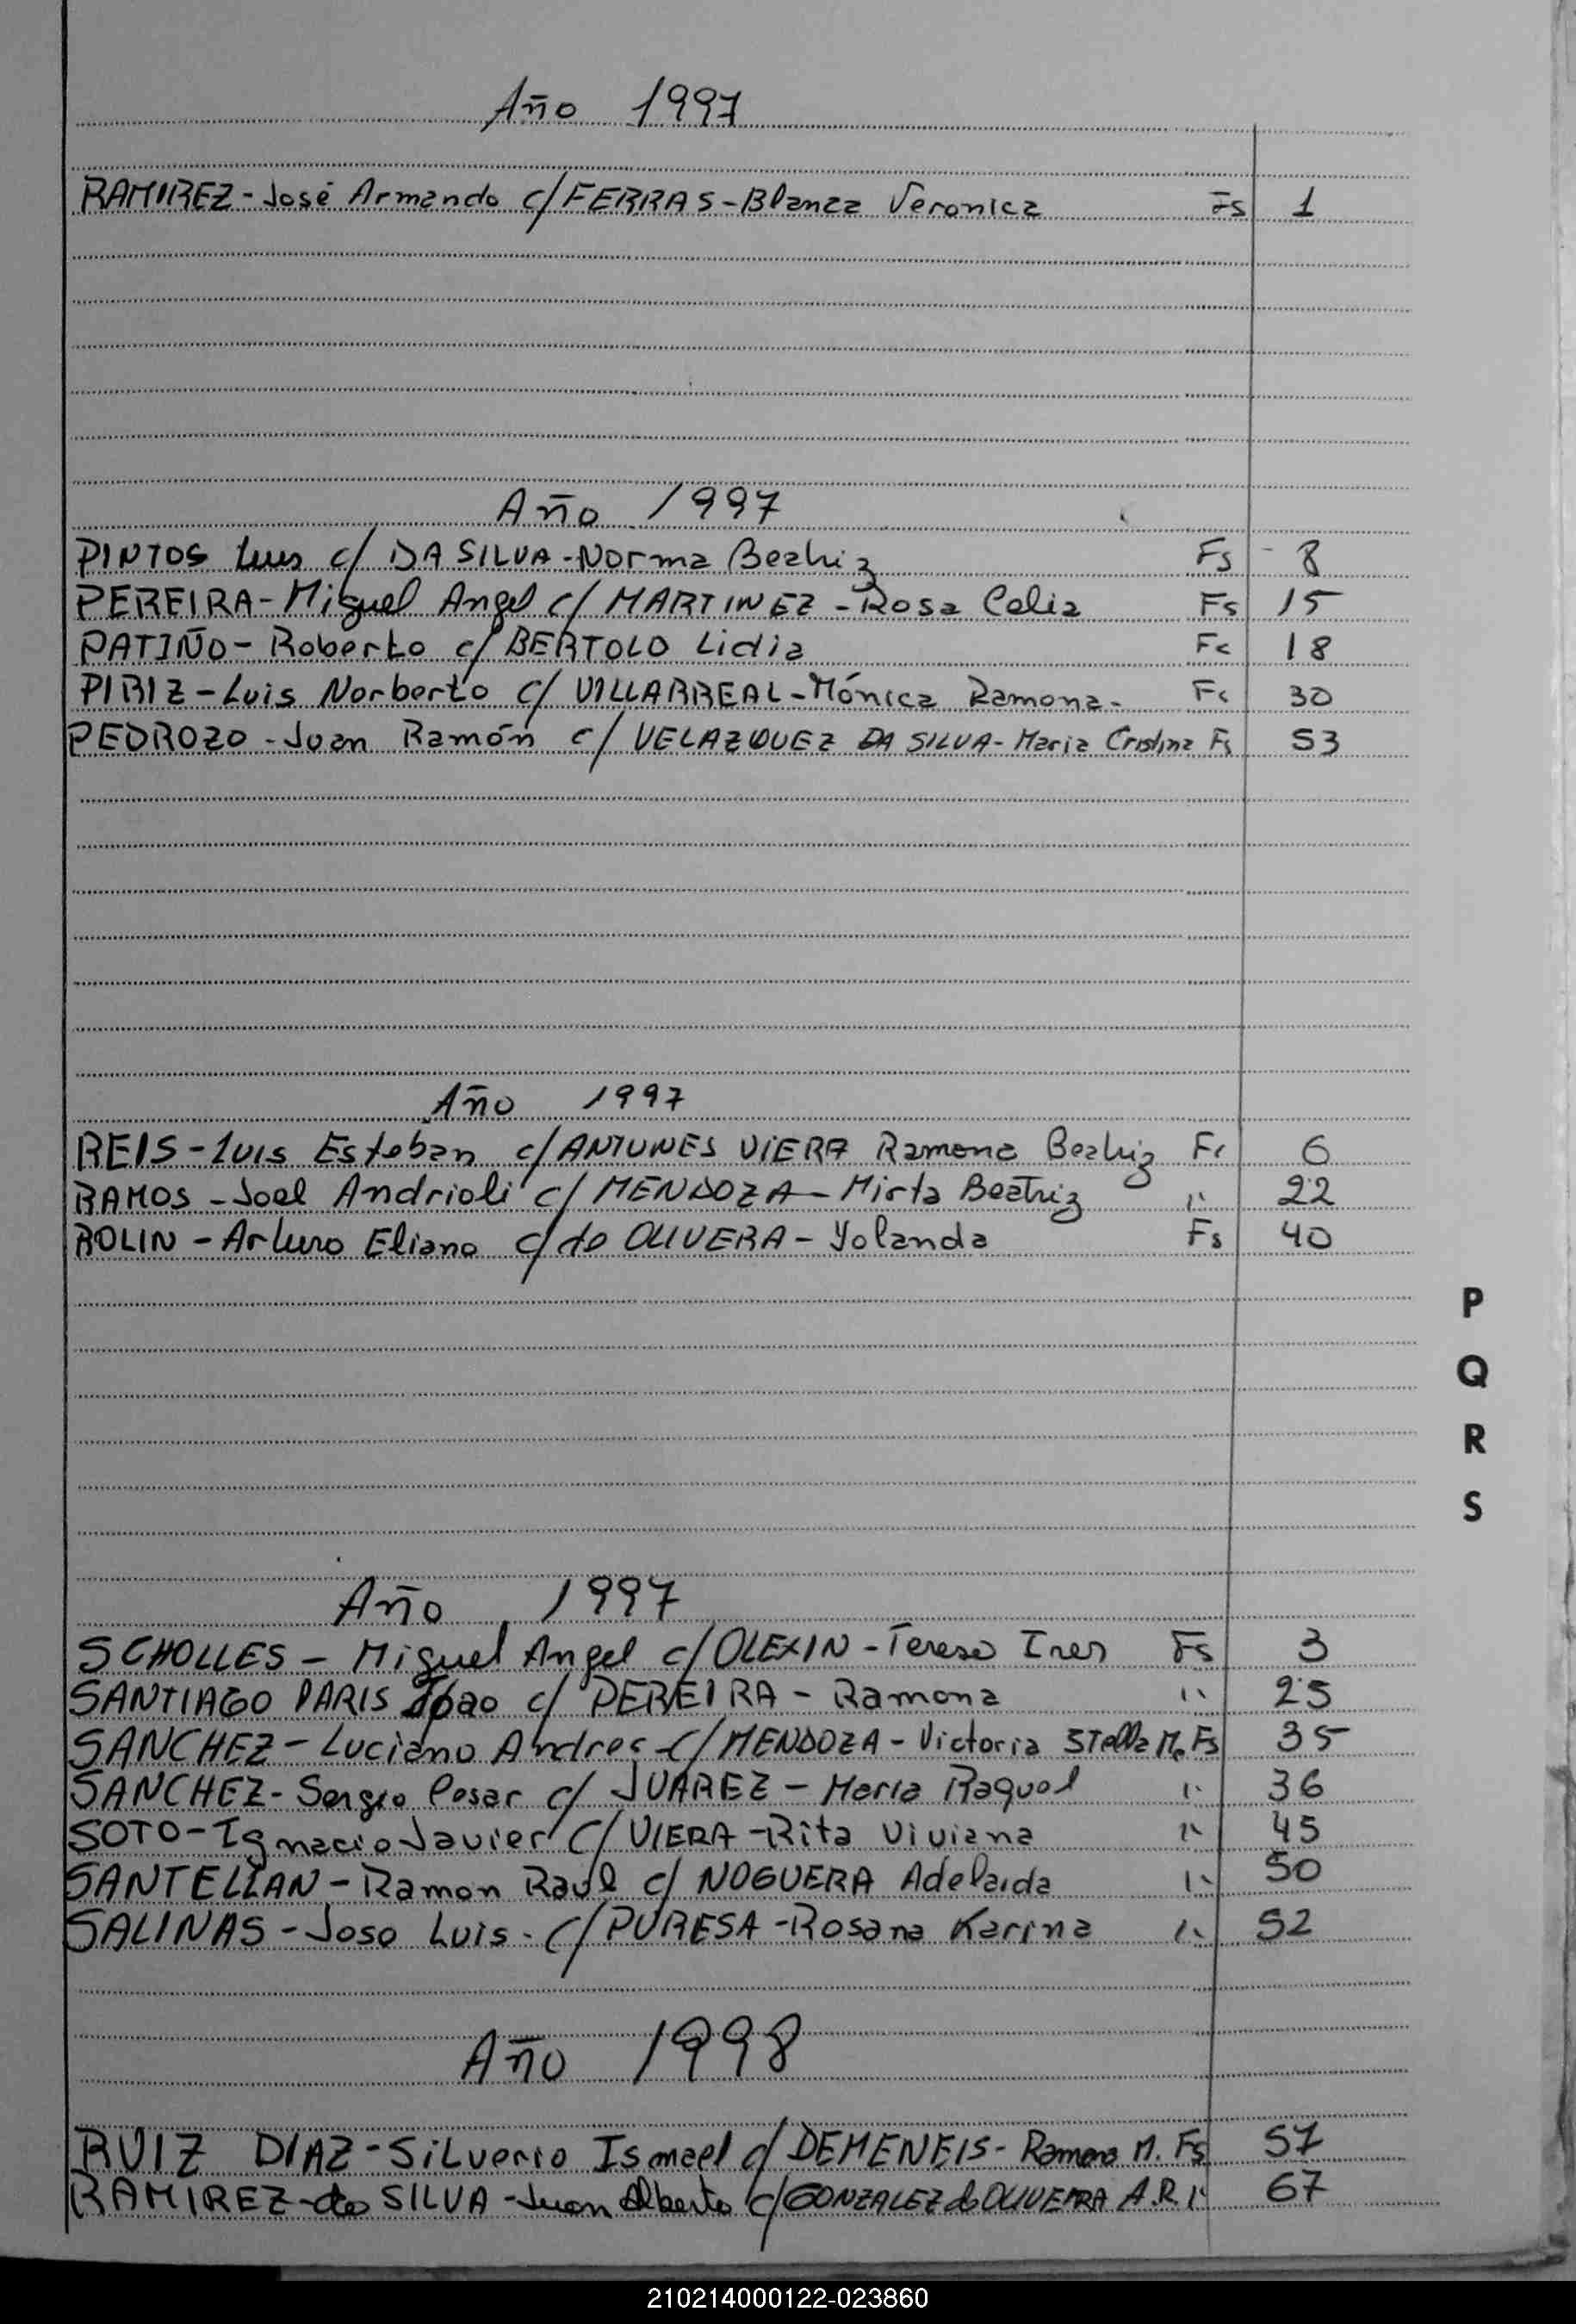 Año 1997
RAMIREZ - José Armando c/ FERRAS - Blanca Veronica Fs 1
Año 1997
PINTOS Luis c/ DA SILVA - Norma Beatriz Fs 8
PEREIRA - Miguel Angel c/ MARTINEZ - Rosa Celia Fs 15
PATIÑO - Roberto c/ BERTOLO Lidia Fs 18
PIRIZ - Luis Norberto c/ VILLARREAL - Mónica Ramona - Fs 30
PEDROZO - Juan Ramón c/ VELAZQUEZ DA SILVA - Maria Cristina Fs 53
Año 1997
REIS - Luis Esteban c/ ANTUNES VIERA Ramona Beatriz Fs 6
RAMOS - Joel Andrioli c/ MENDOZA - Mirta Beatriz " 22
ROLIN - Arturo Eliano c/ de OLIVERA - Yolanda Fs 40
P
Q
R
S
Año 1997
SCHOLLES - Miguel Angel c/ OLEXIN - Teresa Ines Fs 3
SANTIAGO PARIS Joao c/ PEREIRA - Ramona " 25
SANCHEZ - Luciano Andres c/ MENDOZA - Victoria Stella M. Fs 35
SANCHEZ - Sergio Cesar c/ JUAREZ - Maria Raquel " 36
SOTO - Ignacio Javier c/ VIERA - Rita Viviana " 45
SANTELLAN - Ramon Raúl c/ NOGUERA Adelaida " 50
SALINAS - Jose Luis - c/ PURESA - Rosana Karina " 52
Año 1998
RUIZ DIAZ - Silverio Ismael c/ DEMENEIS - Ramona M. Fs 57
RAMIREZ - de SILVA - Juan Alberto c/ GONZALEZ de OLIVEIRA A.R " 67
210214000122-023860